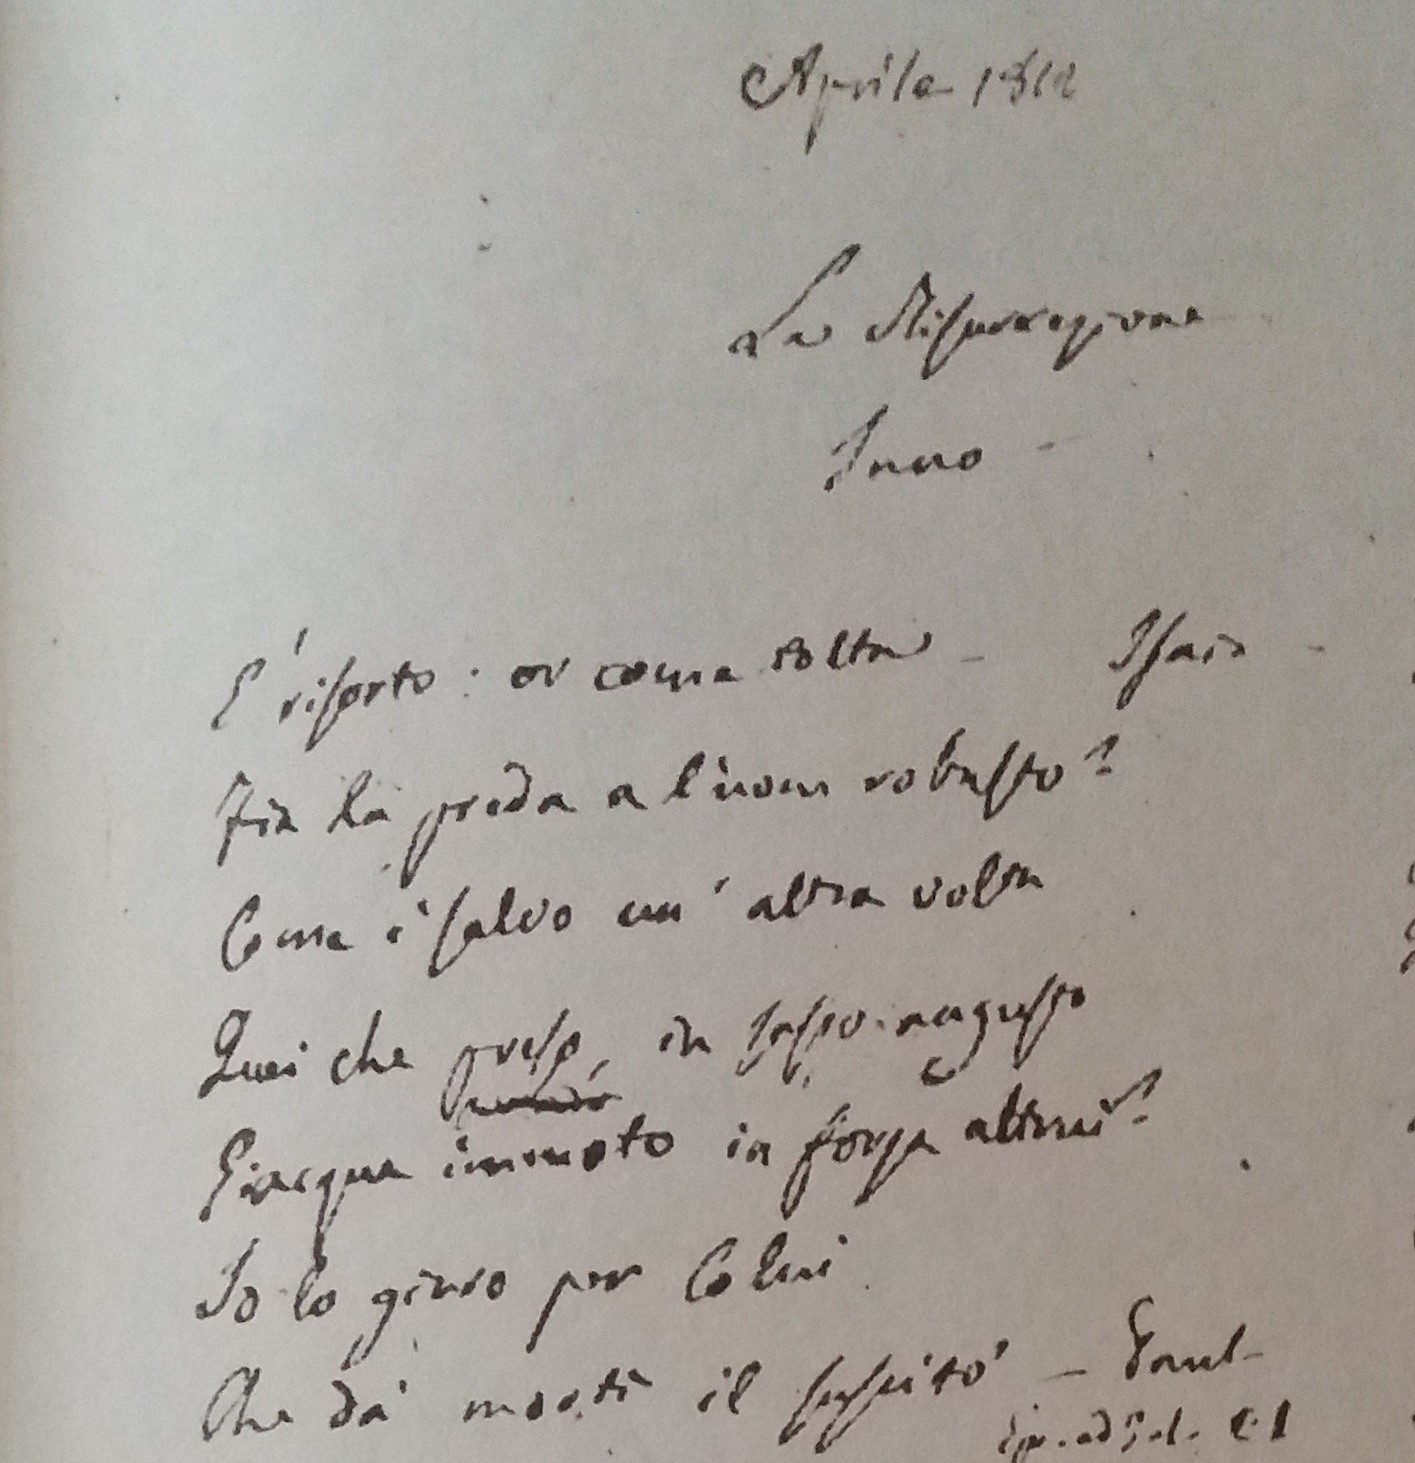 Aprile 1812
La Risurrezione
Inno -
E' risorto: or come tolta - Isaia -
Fia la preda a l'uom robusto?
Come è salvo un' altra volta
Quei che preso, in sasso angusto
Giacque immoto in forza altrui?
Io lo giuro per Colui
Che da' morti il suscitò - Paul-
Ep. ad Gal. C. 1